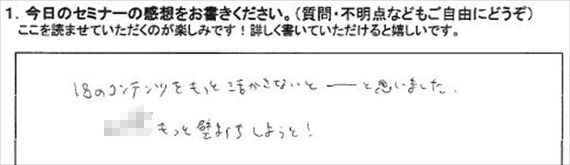 1. 今日のセミナーの感想をお書きください。(質問・不明点などもご自由にどうぞ)
ここを読ませていただくのが楽しみです！詳しく書いていただけると嬉しいです。
18のコンテンツをもっと活かさないと ── と思いました.
もっと壁打ちしようと！